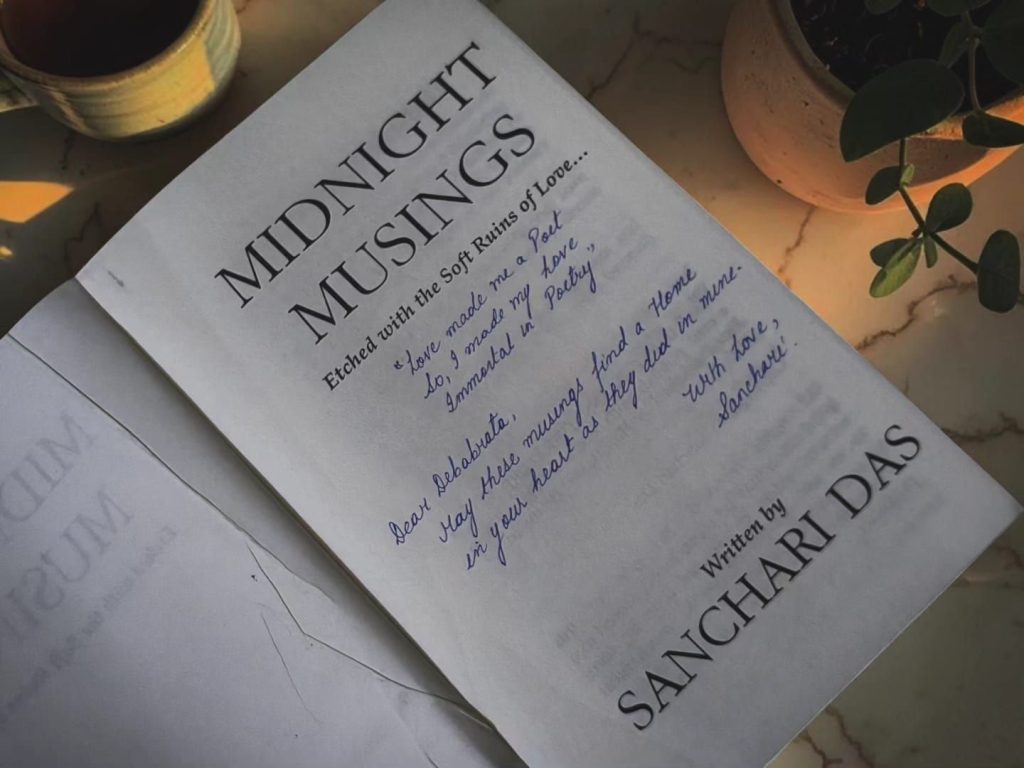 MIDNIGHT
MUSINGS
Etched with the Soft Ruins of Love...
"Love made me a Poet
So, I made my Love
Immortal in Poetry"
Dear Debabrata,
May these musings find a Home
in your heart as they did in mine.
With Love,
Sanchari.
Written by
SANCHARI DAS